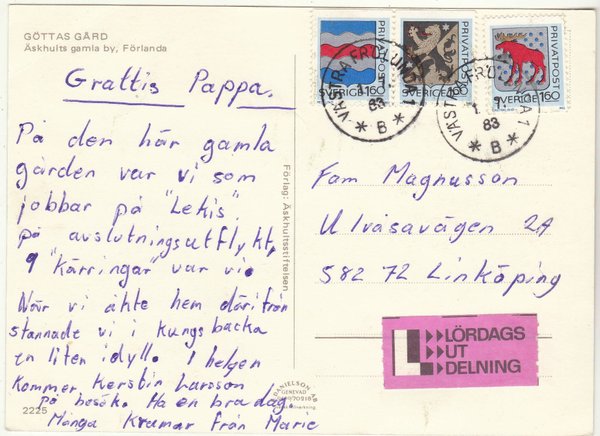 GÖTTAS GÅRD
Äskhults gamla by, Förlanda
Grattis Pappa.
På den här gamla
gården var vi som
jobbar på "Lekis".
på avslutningsutflykt,
9 "kärringar" var vi.
När vi åkte hem därifrån
stannade vi i Kungsbacka
en liten idyll. I helgen
kommer Kerstin Larsson
på besök. Ha en bra dag.
Många Kramar från Marie
2225
Förlag: Äskhultsstiftelsen
DANIELSON AB
GENEVAD
PRIVATPOST
SVERIGE 160
PRIVATPOST
SVERIGE 160
PRIVATPOST
SVERIGE 160
VÄSTRA FRÖLUNDA 1
83
* B *
VÄSTRA FRÖLUNDA 1
83
* B *
Fam Magnusson
Ulvåsavägen 2A
582 72 Linköping
L LÖRDAGS
UT
DELNING